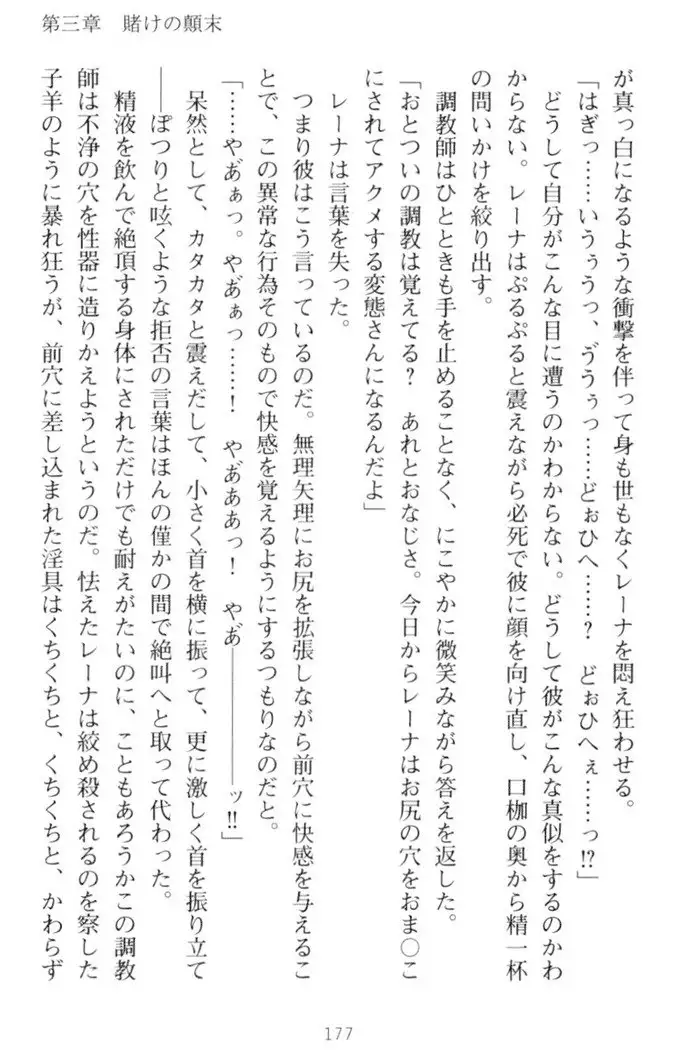 第三章　賭けの顛末
が真っ白になるような衝撃を伴って身も世もなくレーナを悶え狂わせる。
「はぎっ……いうぅうっ、ゔうぅっ……どぉひへ……？　どぉひへぇ……っ!?」
どうして自分がこんな目に遭うのかわからない。どうして彼がこんな真似をするのかわ
からない。レーナはぷるぷると震えながら必死で彼に顔を向け直し、口枷の奥から精一杯
の問いかけを絞り出す。
調教師はひとときも手を止めることなく、にこやかに微笑みながら答えを返した。
「おとついの調教は覚えてる？　あれとおなじさ。今日からレーナはお尻の穴をおま〇こ
にされてアクメする変態さんになるんだよ」
レーナは言葉を失った。
つまり彼はこう言っているのだ。無理矢理にお尻を拡張しながら前穴に快感を与えるこ
とで、この異常な行為そのもので快感を覚えるようにするつもりなのだと。
「……やあ゙ぁっ。やあ゙ぁっ……！　やあ゙ああっ！　やあ゙――――――ッ!!」
呆然として、カタカタと震えだして、小さく首を横に振って、更に激しく首を振り立て
――ぽつりと呟くような拒否の言葉はほんの僅かの間で絶叫へと取って代わった。
精液を飲んで絶頂する身体にされただけでも耐えがたいのに、こともあろうかこの調教
師は不浄の穴を性器に造りかえようというのだ。怯えたレーナは絞め殺されるのを察した
子羊のように暴れ狂うが、前穴に差し込まれた淫具はくちくちと、くちくちと、かわらず
177